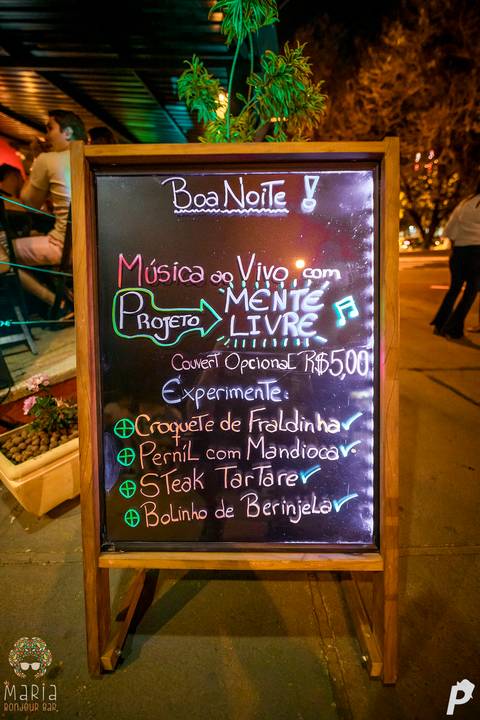 Boa Noite !
Música ao Vivo com
Projeto MENTE
LIVRE
Couvert Opcional R$5,00
Experimente:
Croquete de Fraldinha
Pernil com Mandioca
Steak Tartare
Bolinho de Berinjela
MARIA
BONJEUR BAR.
P